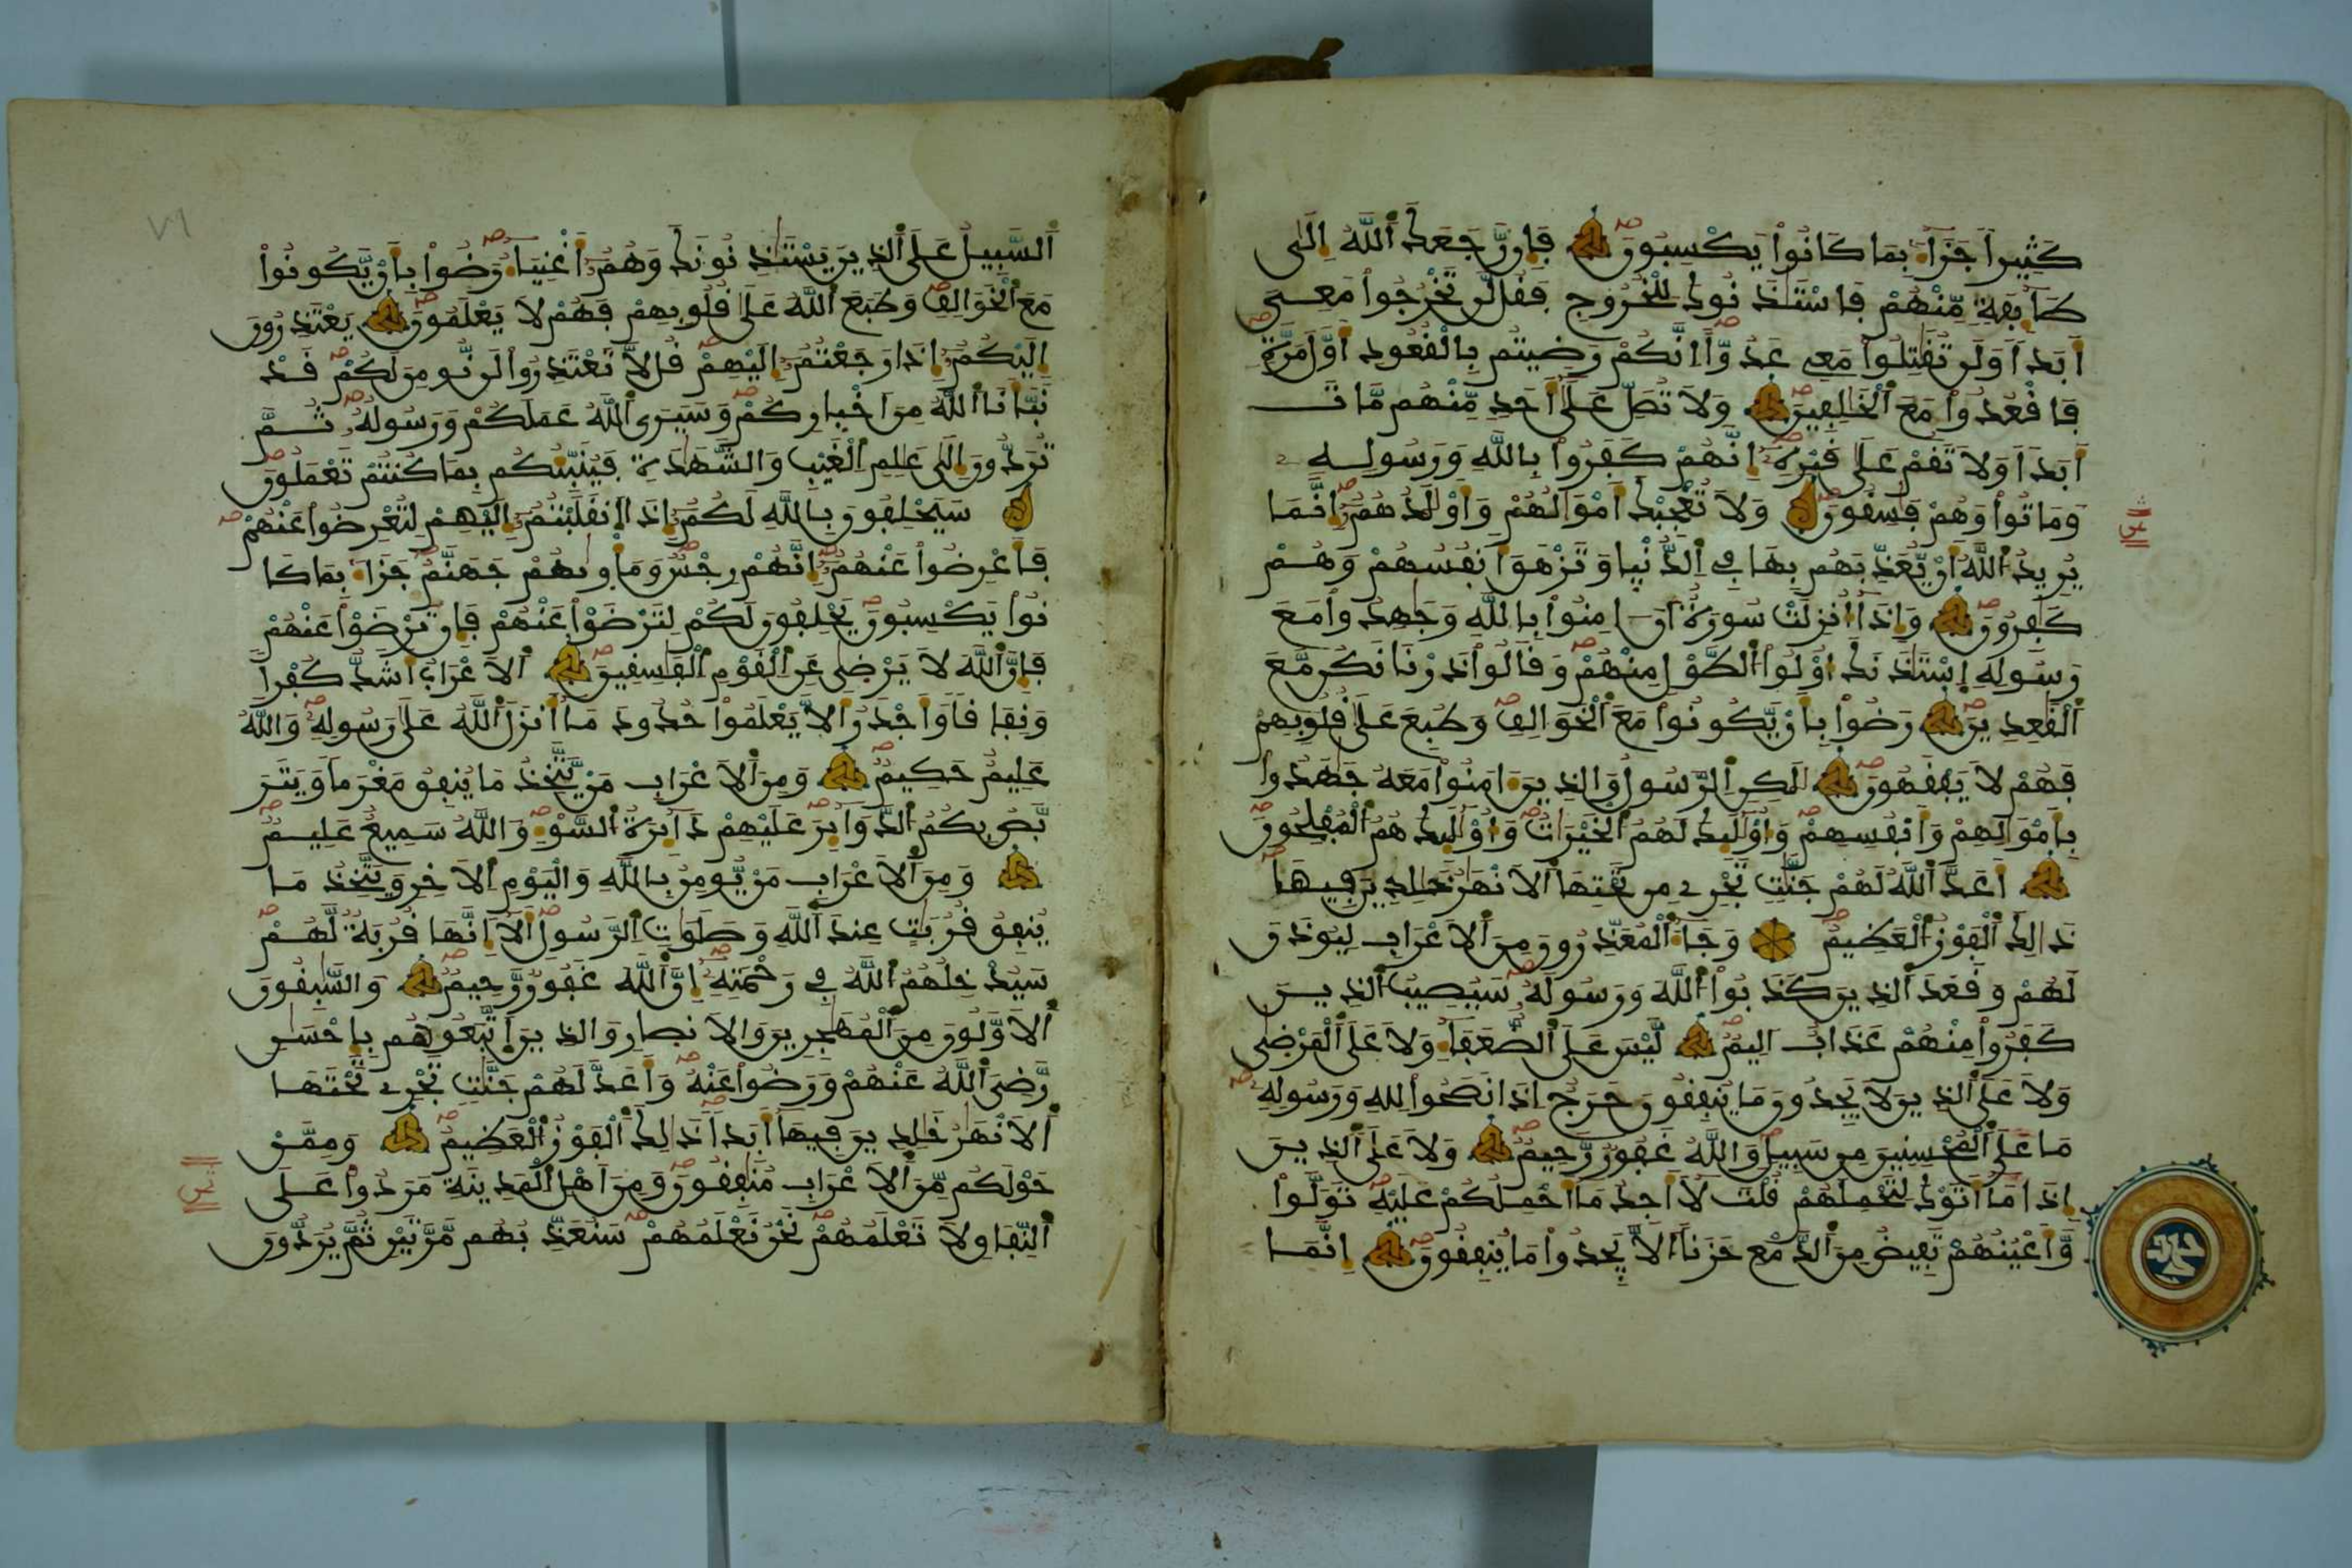 كَثِيراً جَزَآءَۢ بِمَا كَانُواْ يَكْسِبُونَ فَإِن رَّجَعَكَ ٱللَّهُ إِلَىٰ
طَآئِفَةٖ مِّنْهُمْ فَاسْتَـٔذَنُوكَ لِلْخُرُوجِ فَقُل لَّن تَخْرُجُواْ مَعِيَ
أَبَداٗ وَلَن تُقَٰتِلُواْ مَعِي عَدُوّاًۖ اِنَّكُمْ رَضِيتُم بِالْقُعُودِ أَوَّلَ مَرَّةٖ
فَاقْعُدُواْ مَعَ ٱلْخَٰلِفِينَ وَلَا تُصَلِّ عَلَىٰٓ أَحَدٖ مِّنْهُم مَّاتَ
أَبَداٗ وَلَا تَقُمْ عَلَىٰ قَبْرِهِۦٓۖ إِنَّهُمْ كَفَرُواْ بِاللَّهِ وَرَسُولِهِۦ
وَمَاتُواْ وَهُمْ فَٰسِقُونَ وَلَا تُعْجِبْكَ أَمْوَٰلُهُمْ وَأَوْلَٰدُهُمُۥٓۖ إِنَّمَا
يُرِيدُ ٱللَّهُ أَنْ يُّعَذِّبَهُم بِهَا فِي ٱلدُّنْيا وَتَزْهَقَ أَنفُسُهُمْ وَهُمْ
كَٰفِرُونَ وَإِذَآ أُنزِلَتْ سُورَةٌ أَنَ اٰمِنُواْ بِاللَّهِ وَجَٰهِدُواْ مَعَ
رَسُولِهِ إِسْتَـٔذَنَكَ أُوْلُواْ ٱلطَّوْلِ مِنْهُمْ وَقَالُواْ ذَرْنَا نَكُن مَّعَ
ٱلْقَٰعِدِينَ رَضُواْ بِأَنْ يَّكُونُواْ مَعَ ٱلْخَوَالِفِ وَطُبِعَ عَلَىٰ قُلُوبِهِمْ
فَهُمْ لَا يَفْقَهُونَ لَٰكِنِ ٱلرَّسُولُ وَالذِينَ ءَامَنُواْ مَعَهُۥ جَٰهَدُواْ
بِأَمْوَٰلِهِمْ وَأَنفُسِهِمْ وَأُوْلَٰٓئِكَ لَهُمُ ٱلْخَيْرَٰتُ وَأُوْلَٰٓئِكَ هُمُ ٱلْمُفْلِحُونَ
أَعَدَّ ٱللَّهُ لَهُمْ جَنَّٰتٖ تَجْرِي مِن تَحْتِهَا ٱلْأَنْهَٰرُ خَٰلِدِينَ فِيهَا
ذَٰلِكَ ٱلْفَوْزُ ٱلْعَظِيمُ وَجَآءَ ٱلْمُعَذِّرُونَ مِنَ ٱلْأَعْرَابِ لِيُوذَنَ
لَهُمْ وَقَعَدَ ٱلذِينَ كَذَبُواْ ٱللَّهَ وَرَسُولَهُۥ سَيُصِيبُ ٱلذِينَ
كَفَرُواْ مِنْهُمْ عَذَابٌ أَلِيمٌ لَّيْسَ عَلَى ٱلضُّعَفَآءِ وَلَا عَلَى ٱلْمَرْضَىٰ
وَلَا عَلَى ٱلذِينَ لَا يَجِدُونَ مَا يُنفِقُونَ حَرَجٌ إِذَا نَصَحُواْ لِلهِ وَرَسُولِهِۦ
مَا عَلَى ٱلْمُحْسِنِينَ مِن سَبِيلٖ وَاللَّهُ غَفُورٞ رَّحِيمٞ وَلَا عَلَى ٱلذِينَ
إِذَا مَآ أَتَوْكَ لِتَحْمِلَهُمْ قُلْتَ لَآ أَجِدُ مَآ أَحْمِلُكُمْ عَلَيْهِ تَوَلَّواْ
وَّأَعْيُنُهُمْ تَفِيضُ مِنَ ٱلدَّمْعِ حَزَناً ٱلَّا يَجِدُواْ مَا يُنفِقُونَ إِنَّمَا
ٱلسَّبِيلُ عَلَى ٱلذِينَ يَسْتَـٔذِنُونَكَ وَهُمُۥٓ أَغْنِيَآءُ رَضُواْ بِأَنْ يَّكُونُواْ
مَعَ ٱلْخَوَالِفِ وَطَبَعَ ٱللَّهُ عَلَىٰ قُلُوبِهِمْ فَهُمْ لَا يَعْلَمُونَ يَعْتَذِرُونَ
إِلَيْكُمُۥٓ إِذَا رَجَعْتُمُۥٓ إِلَيْهِمْ قُل لَّا تَعْتَذِرُواْ لَن نُّومِنَ لَكُمْ قَدْ
نَبَّأَنَا ٱللَّهُ مِنَ اَخْبِارِكُمْ وَسَيَرَى ٱللَّهُ عَمَلَكُمْ وَرَسُولُهُۥ ثُمَّ
تُرَدُّونَ إِلَىٰ عَٰلِمِ ٱلْغَيْبِ وَالشَّهَٰدَةِ فَيُنَبِّئُكُم بِمَا كُنتُمْ تَعْمَلُونَ
سَيَحْلِفُونَ بِاللَّهِ لَكُمُۥٓ إِذَا ٱنقَلَبْتُمُۥٓ إِلَيْهِمْ لِتُعْرِضُواْ عَنْهُمْ
فَأَعْرِضُواْ عَنْهُمُۥٓ إِنَّهُمْ رِجْسٞ وَمَأْوِىٰهُمْ جَهَنَّمُ جَزَآءَۢ بِمَا كَا
نُواْ يَكْسِبُونَ يَحْلِفُونَ لَكُمْ لِتَرْضَوْاْ عَنْهُمْ فَإِن تَرْضَوْاْ عَنْهُمْ
فَإِنَّ ٱللَّهَ لَا يَرْضَىٰ عَنِ ٱلْقَوْمِ ٱلْفَٰسِقِينَ ٱلْأَعْرَابُ أَشَدُّ كُفْراٗ
وَنِفَاقاٗ وَأَجْدَرُ أَلَّا يَعْلَمُواْ حُدُودَ مَآ أَنزَلَ ٱللَّهُ عَلَىٰ رَسُولِهِۦ وَاللَّهُ
عَلِيمٌ حَكِيمٞ وَمِنَ ٱلْأَعْرَابِ مَنْ يَّتَّخِذُ مَا يُنفِقُ مَغْرَماٗ وَيَتَرَ
بَّصُ بِكُمُ ٱلدَّوَآئِرَ عَلَيْهِمْ دَآئِرَةُ ٱلسَّوْءِ وَاللَّهُ سَمِيعٌ عَلِيمٞ
وَمِنَ ٱلْأَعْرَابِ مَنْ يُّومِنُ بِاللَّهِ وَالْيَوْمِ ٱلْأَخِرِ وَيَتَّخِذُ مَا
يُنفِقُ قُرُبَٰتٍ عِندَ ٱللَّهِ وَصَلَوَٰتِ ٱلرَّسُولِ أَلَآ إِنَّهَا قُرُبَةٞ لَّهُمْ
سَيُدْخِلُهُمُ ٱللَّهُ فِي رَحْمَتِهِۦٓ إِنَّ ٱللَّهَ غَفُورٞ رَّحِيمٞ وَالسَّٰبِقُونَ
ٱلْأَوَّلُونَ مِنَ ٱلْمُهَٰجِرِينَ وَالْأَنصارِ وَالذِينَ ٱتَّبَعُوهُم بِإِحْسَٰنٖ
رَّضِيَ ٱللَّهُ عَنْهُمْ وَرَضُواْ عَنْهُ وَأَعَدَّ لَهُمْ جَنَّٰتٖ تَجْرِي تَحْتَهَا
ٱلْأَنْهَٰرُ خَٰلِدِينَ فِيهَآ أَبَداٗ ذَٰلِكَ ٱلْفَوْزُ ٱلْعَظِيمُ وَمِمَّنْ
حَوْلَكُم مِّنَ ٱلْأَعْرَابِ مُنَٰفِقُونَ وَمِنَ اَهْلِ ٱلْمَدِينَةِ مَرَدُواْ عَلَى
ٱلنِّفَاقِ لَا تَعْلَمُهُمْ نَحْنُ نَعْلَمُهُمْ سَنُعَذِّبُهُم مَّرَّتَيْنِ ثُمَّ يُرَدُّونَ